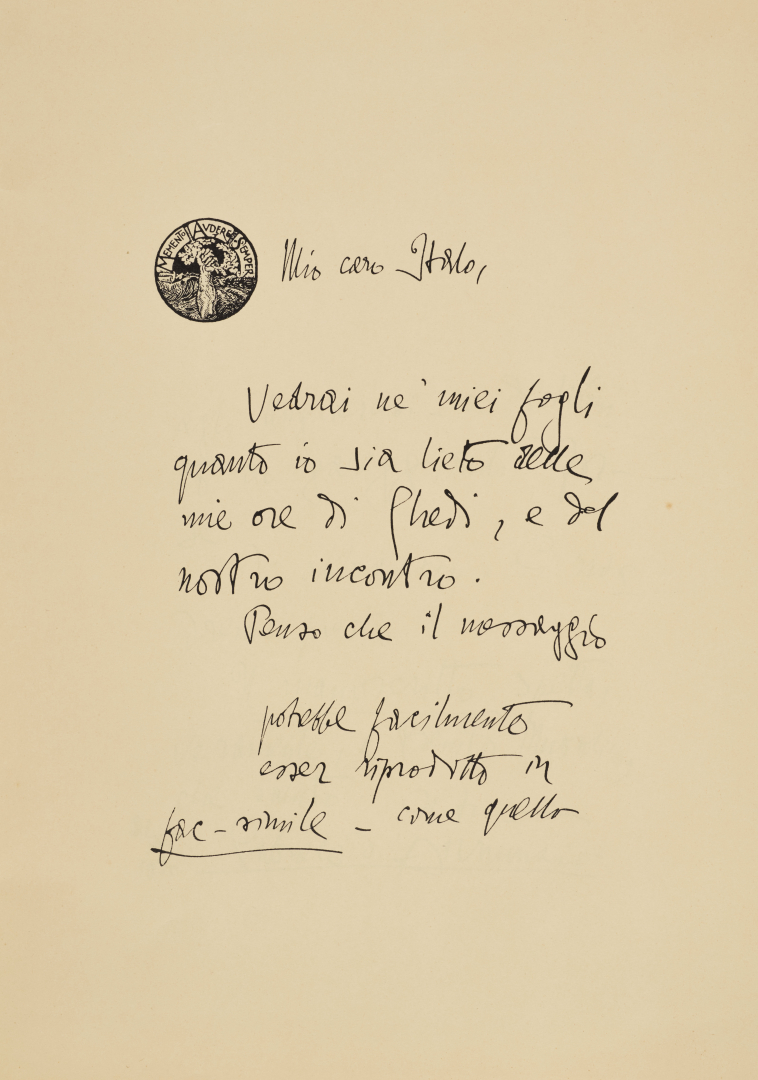 MEMENTO AUDERE SEMPER
Mio caro Italo,
Vedrai ne' miei fogli
quanto io sia lieto delle
mie ore di Ghedi, e del
nostro incontro.
Penso che il messaggio
potrebbe facilmente
esser riprodotto in
fac-simile - come quello